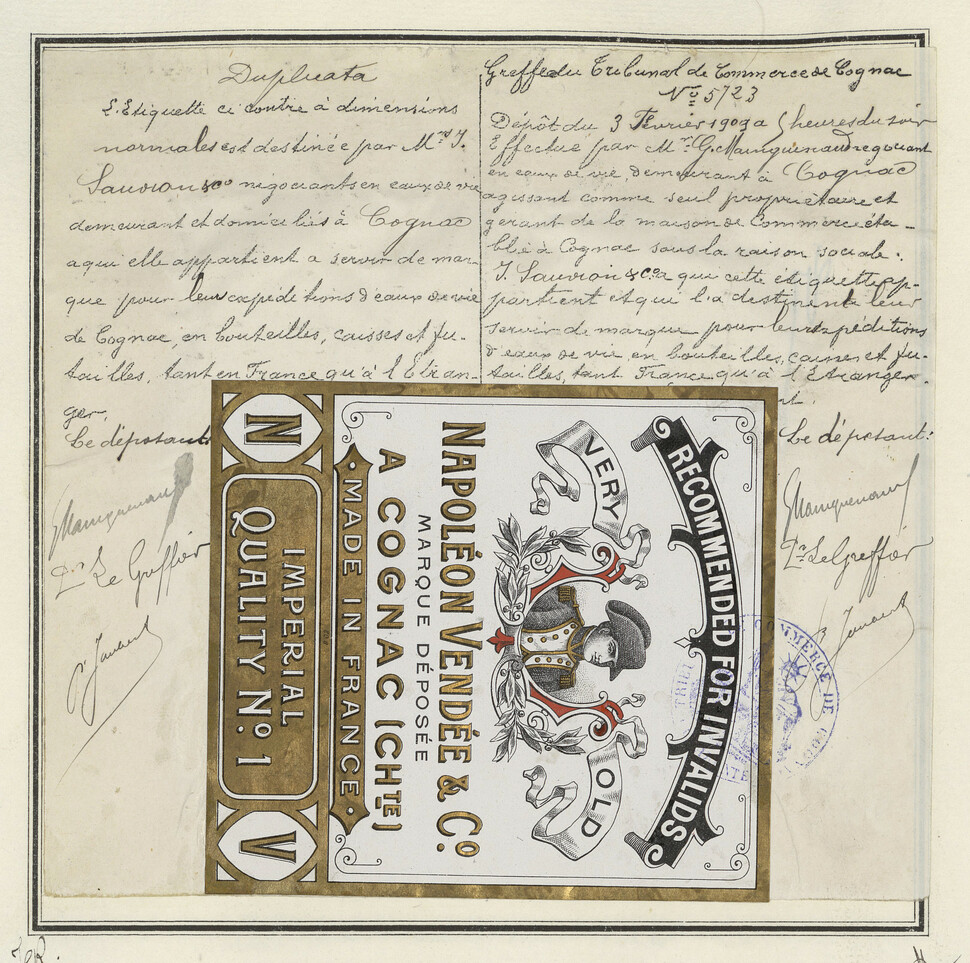 Duplicata
L'Etiquette ci contre à dimensions
normales est destinée par Mrs J.
Sauvion & Co négociants en eaux de vie
demeurant et domiciliés à Cognac
a qui elle appartient a servir de mar-
que pour leur expéditions d'eaux de vie
de Cognac, en bouteilles, caisses et fu-
tailles, tant en France qu'à l'Etran-
ger.
Le déposant
Mauguenaud
Pr Le Greffier
Greffe du Tribunal de Commerce de Cognac
No 5723
Dépôt du 3 Février 1909 a 5 heures du soir
Effectué par Mr G. Mauguenaud négociant
en eaux de vie, demeurant à Cognac
agissant comme seul propriétaire et
gérant de la maison de Commerce éta-
blié à Cognac sous la raison sociale:
J. Sauvion & Co a qui cette étiquette ap-
partient et qui l'a destinent leur
servir de marque pour leur expéditions
d'eaux de vie, en bouteilles, caisses et fu-
tailles, tant France qu'à l'Etranger.
Le déposant:
Mauguenaud
Pr Le Greffier
RECOMMENDED FOR INVALIDS
VERY OLD
NAPOLÉON VENDÉE & Co
MARQUE DÉPOSÉE
A COGNAC (CHTE)
MADE IN FRANCE
N
IMPERIAL
QUALITY No. 1
V
COMMERCE DE